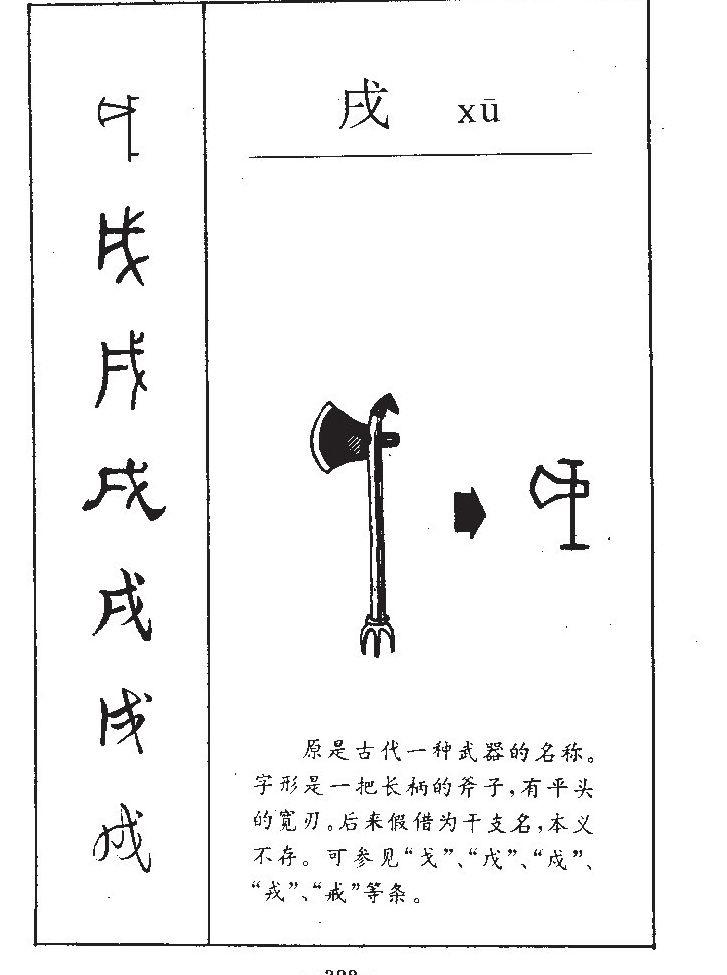 戌 xū
原是古代一种武器的名称。
字形是一把长柄的斧子，有平头
的宽刃。后来假借为干支名，本义
不存。可参见“戈”、“戊”、“戍”、
“戎”、“戒”等条。